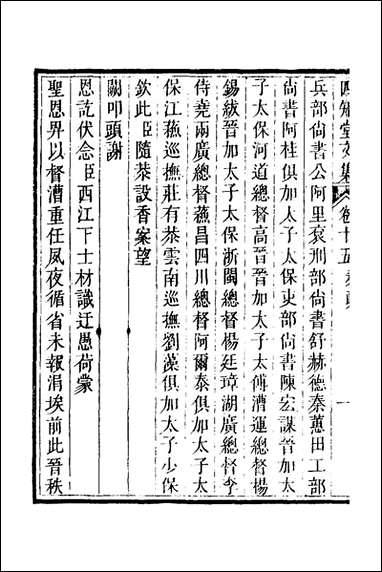 四知堂文集 卷十五 奏疏 一
兵部尚書公阿里衮刑部尚書舒赫德秦蕙田工部
尚書阿桂俱加太子太保吏部尚書陳宏謀晉加太
子太保河道總督高晉晉加太子太傅漕運總督楊
錫紱晉加太子太保浙閩總督楊廷璋湖廣總督李
侍堯兩廣總督蘇昌四川總督阿爾泰俱加太子太
保江蘇巡撫莊有恭雲南巡撫劉藻俱加太子少保
欽此臣隨恭設香案望
闕叩頭謝
恩訖伏念臣西江下士材識迂愚荷蒙
聖恩畀以督漕重任夙夜循省未報涓埃前此晉秩